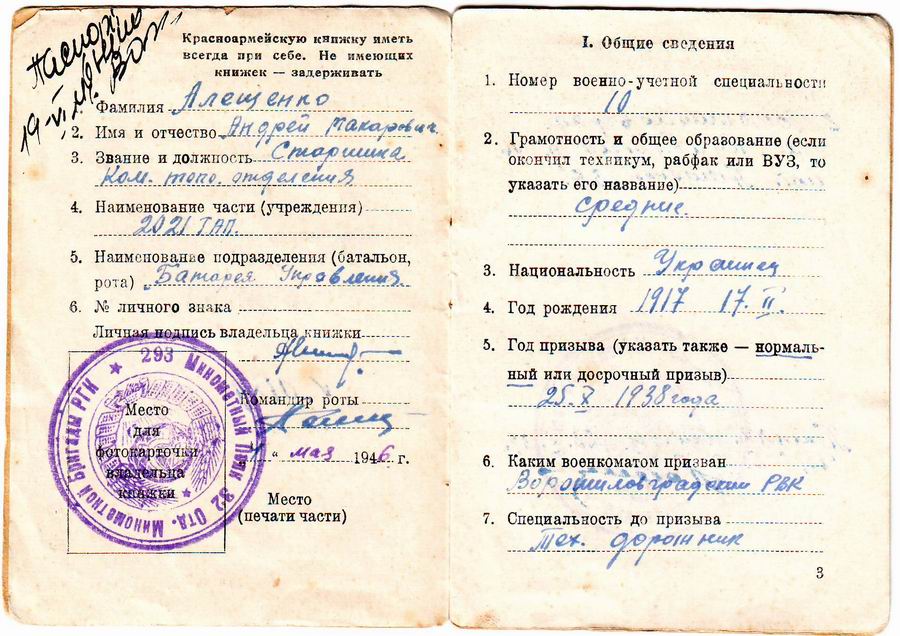 Паспорт
19-VI
Красноармейскую книжку иметь
всегда при себе. Не имеющих
книжек — задерживать
Фамилия Алещенко
2. Имя и отчество Андрей Макарович
3. Звание и должность Старшина
Ком. топо. отделения
4. Наименование части (учреждения)
2021 ТАП.
5. Наименование подразделения (батальон,
рота) Батарея Управления
6. № личного знака
Личная подпись владельца книжки
Командир роты
" " мая 1946 г.
Место
для
фотокарточки
владельца
книжки
Место
(печати части)
293 Минометный Полк 32 Отд. Минометной Бригады РГК
I. Общие сведения
1. Номер военно-учетной специальности
10
2. Грамотность и общее образование (если
окончил техникум, рабфак или ВУЗ, то
указать его название)
средние.
3. Национальность Украинец
4. Год рождения 1917 17.II.
5. Год призыва (указать также — нормаль-
ный или досрочный призыв)
25.X 1938 года
6. Каким военкоматом призван
Ворошиловградским РВК
7. Специальность до призыва
Тех. дорожник
3